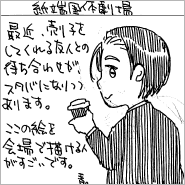 紙端国体劇場
最近、売り子を
してくれる友人との
待ち合わせが、
スタバになりつつ
あります。
ここの絵を
会場で描ける人
がすごいです。